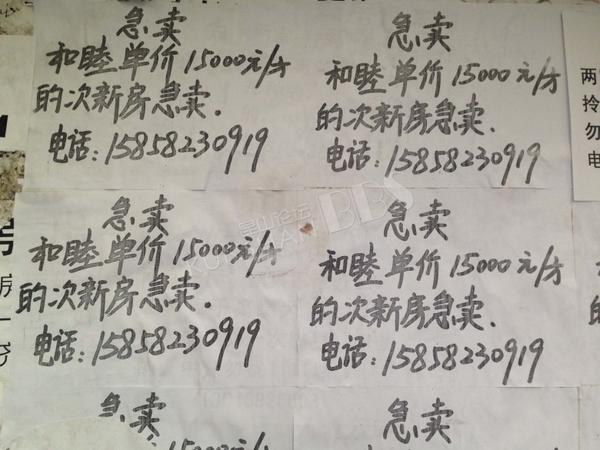 急卖
和睦单价15000元/方
的次新房急卖.
电话:15858230919
急卖
和睦单价15000元/方
的次新房急卖.
电话:15858230919
两
拎
勿
电
急卖
和睦单价15000元/方
的次新房急卖.
电话:15858230919
急卖
和睦单价15000元/方
的次新房急卖.
电话:15858230919
房
一
急卖
15000元/
急卖
BBS